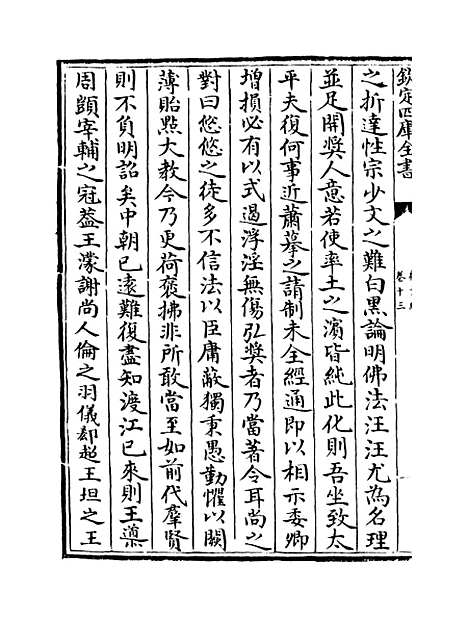 欽定四庫全書
卷十三
之折達性宗少文之難白黑論明佛法汪汪尤為名理
並足開奬人意若使率土之濱皆純此化則吾坐致太
平夫復何事近蕭摹之請制未全經通即以相示委卿
增損必有以式遏浮淫無傷弘奬者乃當著令耳尚之
對曰悠悠之徒多不信法以臣庸蔽獨秉愚勤懼以闕
薄貽㸃大教今乃更荷襃拂非所敢當至如前代羣賢
則不負明詔矣中朝已逺難復盡知渡江已來則王導
周顗宰輔之冠葢王濛謝尚人倫之羽儀郄超王坦之王